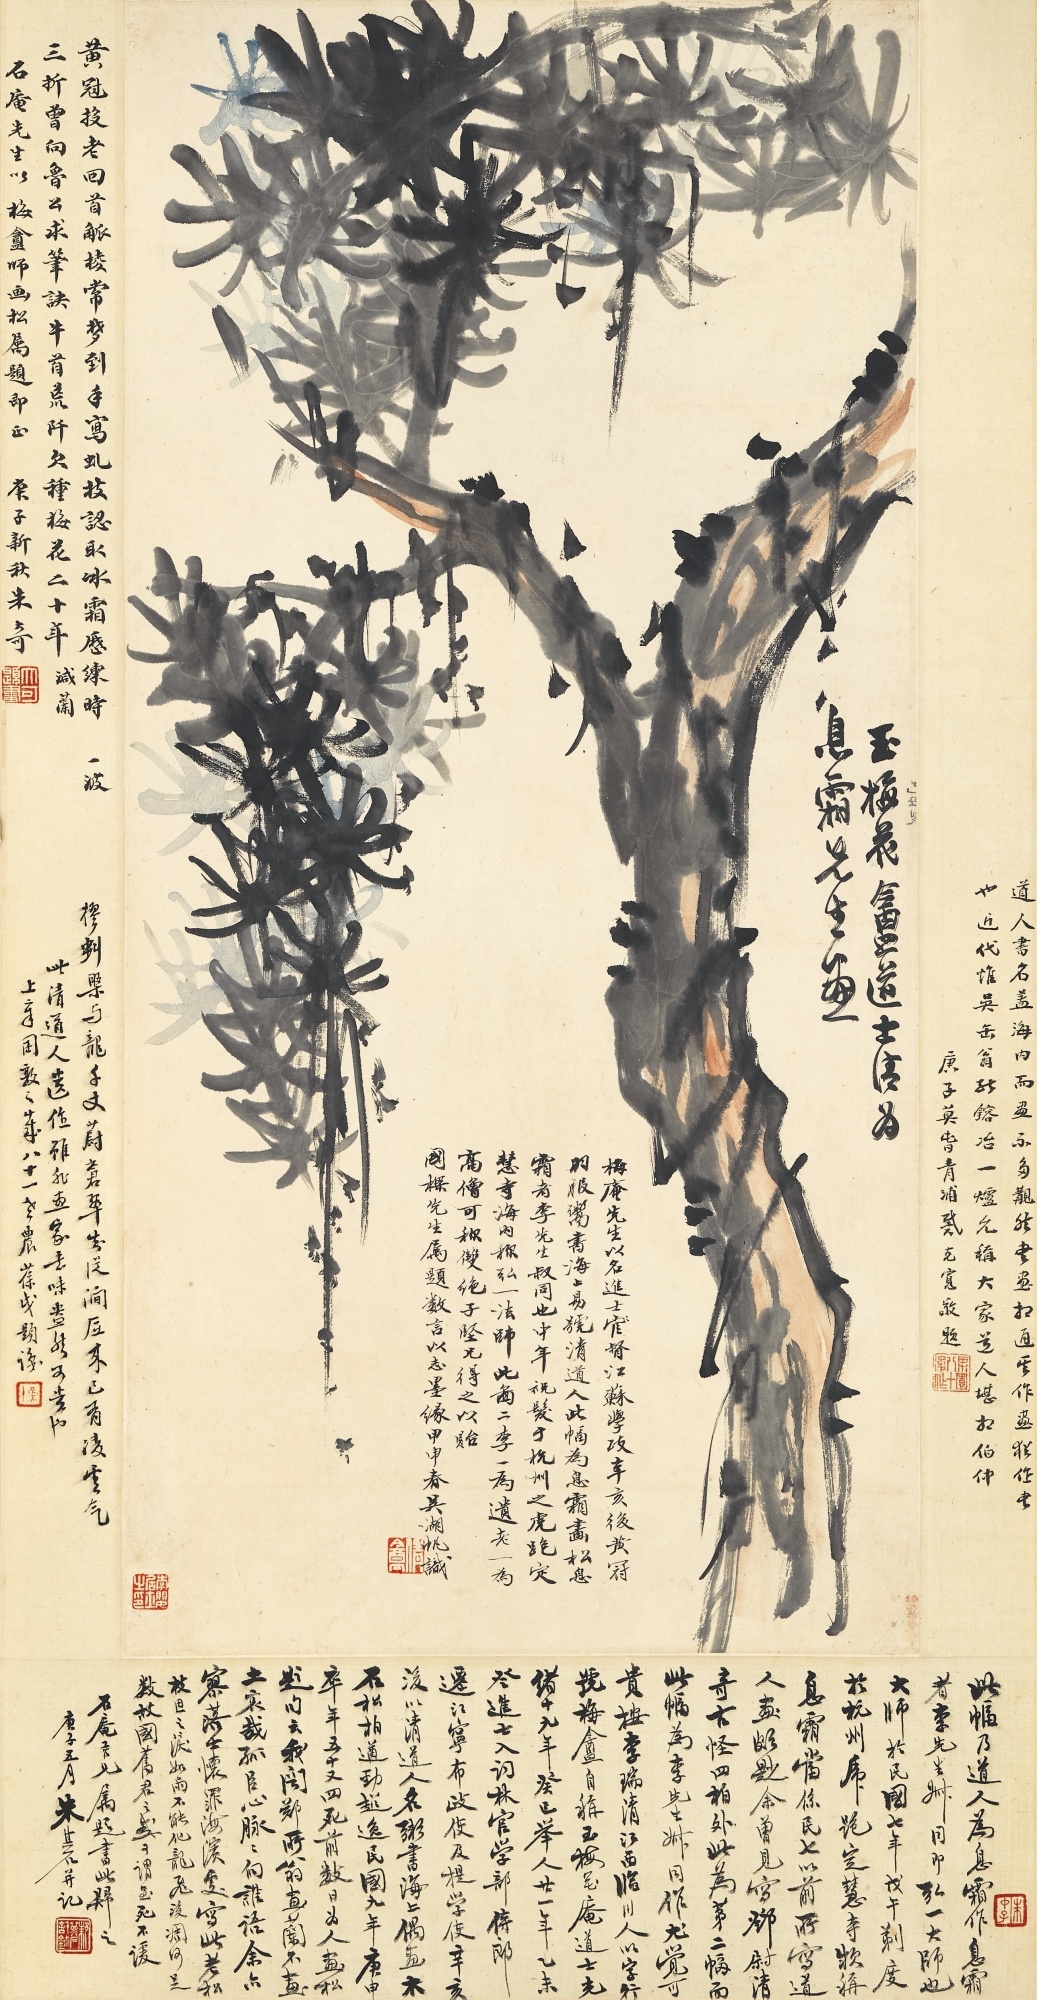 玉梅花盦道士清為
息霜先生畫
梅庵先生以名進士官督江蘇學政辛亥後黃冠
羽服鬻書海上易號清道人此幅為息霜畫松息
霜者李先生叔同也中年祝髮于杭州之虎跑定
慧寺海內稱弘一法師此為二李一為遺老一為
高僧可稱雙絕子堅兄得之以貽
國樑先生屬題數言以志墨緣甲申春吳湖帆識
道人書名蓋海內而畫不多覯然書畫相通其作畫猶作書
也近代惟吳缶翁能鎔冶一爐允稱大家道人堪相伯仲
庚子莫春青浦戴克寬敬題
黃冠投老回首觚棱常梦到手寫虬枝認取冰霜歷練時 一波
三折曾向魯公求筆訣牛首荒阡久種梅花二十年 減蘭
石庵先生以梅盦師画松属題即正 庚子新秋朱奇
樛剌與龍千丈蔚蒼翠生從澗底來已有凌雲气
此清道人遺作雖非画家味盎然可貴也
上章困敦之歲八十一老農葆戉題
此幅乃道人為息霜作息霜
者李先生叔同即弘一大師也
大師於民國七年戊午剃度
於杭州虎跑定慧寺款稱
息霜當係民七以前所寫道
人畫頗尟余曾見寫鄧尉清
奇古怪四柏外此為第二幅而
此幅為李先生叔同作尤覺可
貴梅李瑞清江西臨川人以字行
號梅盦自稱玉梅花庵道士光
緒十九年癸巳舉人廿一年乙未
登進士入詞林官學部侍郎
遷江寧布政使及提學使辛亥
後以清道人名鬻書海上偶画木
石松柏遒勁超逸民國九年庚申
卒年五十又四死前數日為人画松
題句云我聞鄭所翁画蘭不画
土哀哉孤臣心脉脉向誰語余亦
寮落士懷罪海濱處寫此老松
枝旦旦淚如雨不能化龍飛凌凋何足
數故國舊君之感可謂至死不諼
石庵吾兄属題書此歸之
庚子五月朱其石并記